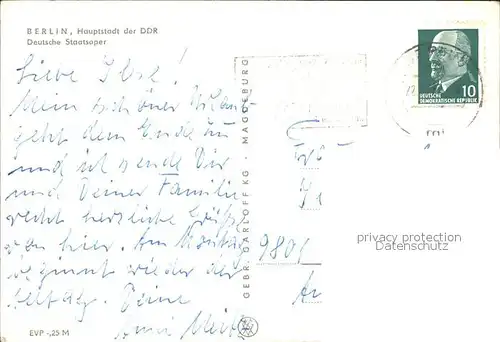 BERLIN, Hauptstadt der DDR
Deutsche Staatsoper
Liebe Ilse!
Mein schöner Urlaub
geht dem Ende zu
und ich sende Dir
und Deiner Familie
recht herzliche Grüße
von hier. Am Montag
beginnt wieder der
Alltag. Deine
EVP -,25 M
GEBR. GARLOFF KG - MAGDEBURG
10
DEUTSCHE
DEMOKRATISCHE REPUBLIK
9801
privacy protection
Datenschutz